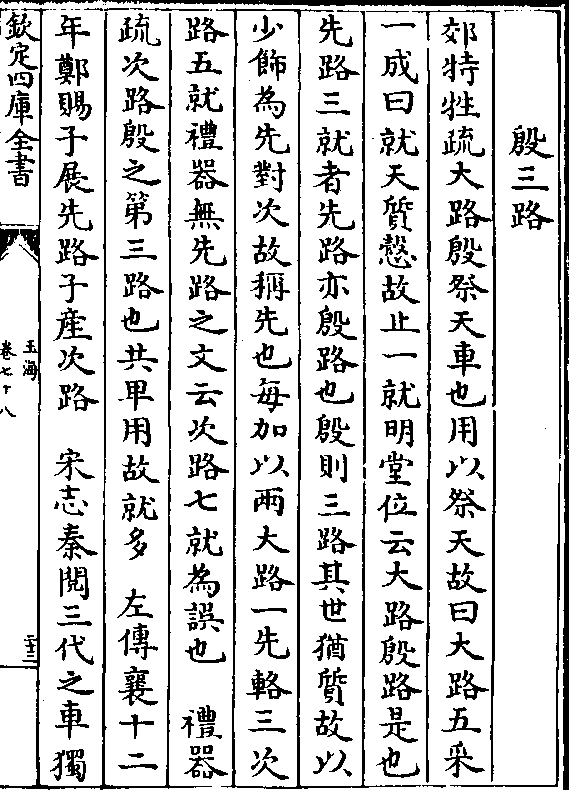 殷三路
郊特牲疏大路殷祭天車也用以祭天故曰大路五采
一成曰就天質慤故止一就明堂位云大路殷路是也
先路三就者先路亦殷路也殷則三路其世猶質故以
少飾為先對次故稱先也每加以兩大路一先輅三次
路五就禮器無先路之文云次路七就為誤也　禮器
疏次路殷之第三路也共卑用故就多　左傳襄十二
年鄭賜子展先路子產次路　宋志秦閱三代之車獨
欽定四庫全書
玉海
卷七十八
二十三